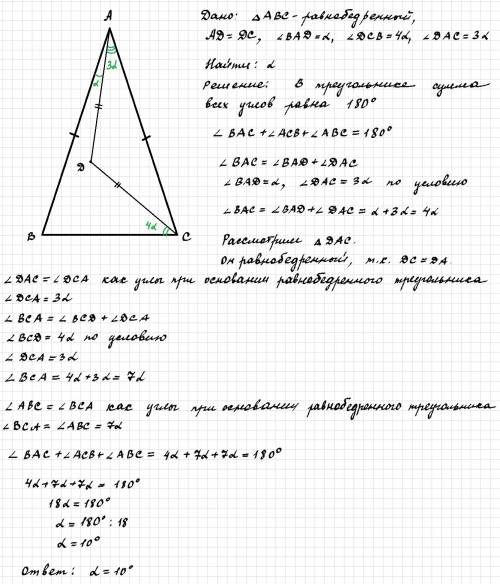 A
3α
α
D
4α
B
C
Дано: △ABC-равнобедренный,
AD=DC, ∠BAD=α, ∠DCB=4α, ∠DAC=3α
Найти: α
Решение: В треугольнике сумма
всех углов равна 180°
∠BAC+∠ACB+∠ABC=180°
∠BAC=∠BAD+∠DAC
∠BAD=α, ∠DAC=3α по условию
∠BAC=∠BAD+∠DAC=α+3α=4α
Рассмотрим △DAC.
Он равнобедренный, т.к. DC=DA.
∠DAC=∠DCA как углы при основании равнобедренного треугольника
∠DCA=3α
∠BCA=∠BCD+∠DCA
∠BCD=4α по условию
∠DCA=3α
∠BCA=4α+3α=7α
∠ABC=∠BCA как углы при основании равнобедренного треугольника
∠BCA=∠ABC=7α
∠BAC+∠ACB+∠ABC=4α+7α+7α=180°
4α+7α+7α=180°
18α=180°
α=180°:18
α=10°
Ответ: α=10°